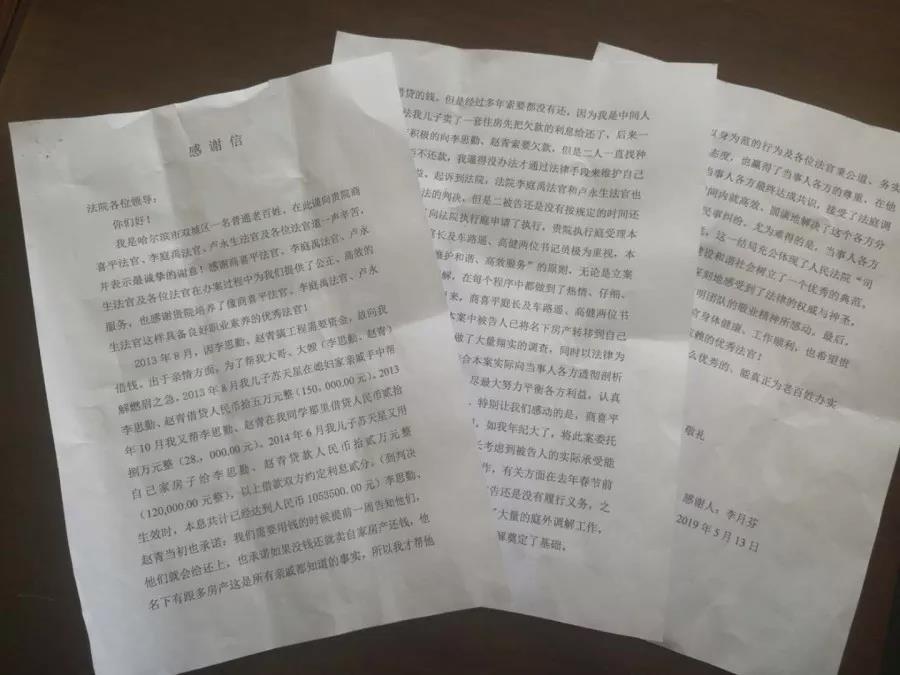 感谢信
法院各位领导：
你们好！
我是哈尔滨市双城区一名普通老百姓，在此谨向贵院商
喜平法官、李庭禹法官、卢永生法官及各位法官道一声辛苦，
并表示最诚挚的谢意！感谢商喜平法官、李庭禹法官、卢永
生法官及各位法官在办案过程中为我们提供了公正、高效的
服务，也感谢贵院培养了像商喜平法官、李庭禹法官、卢永
生法官这样具备良好职业素养的优秀法官！
2013年8月，因李思勤、赵青搞工程需要资金，故向我
借钱，出于亲情方面，为了帮我大哥、大嫂（李思勤、赵青）
解燃眉之急，2013年8月我儿子苏天星在媳妇家亲戚手中帮
李思勤、赵青借贷人民币拾五万元整（150,000.00元），2013
年10月我又帮李思勤、赵青在我同学那里借贷人民币贰拾
捌万元整（28.，000.00元），2014年6月我儿子苏天星又用
自己家房子给李思勤、赵青贷款人民币拾贰万元整
（120,000.00元整），以上借款双方约定利息贰分。（到判决
生效时，本息共计已经达到人民币1053500.00元）李思勤、
赵青当初也承诺：我们需要用钱的时候提前一周告知他们，
他们就会给还上，也承诺如果没钱还就卖自家房产还钱，他
名下有跟多房产这是所有亲戚都知道的事实，所以我才帮他
借贷的钱，但是经过多年索要都没有还，因为我是中间人
法我儿子卖了一套住房先把欠款的利息给还了，后来一
积极的向李思勤、赵青索要欠款，但是二人一直找种
不还款，我逼得没办法才通过法律手段来维护自己
益，起诉到法院，法院李庭禹法官和卢永生法官也
法的判决，但是二被告还是没有按规定的时间还
向法院执行庭申请了执行，贵院执行庭受理本
官长及车路遥、高健两位书记员极为重视，本
维护和谐、高效服务”的原则，无论是立案
解，在每个程序中都做到了热情、仔细、
来，商喜平庭长及车路遥、高健两位书
本案中被告人已将名下房产转移到自己
做了大量翔实的调查，同时以法律为
合本案实际向当事人各方透彻剖析
尽最大努力平衡各方利益，认真
。特别让我们感动的是，商喜平
，如我年纪大了，将此案委托
考虑到被告人的实际承受能
作，有关方面在去年春节前
告还是没有履行义务，之
大量的庭外调解工作，
解奠定了基础，
以身为范的行为及各位法官秉公道、务实
态度，也赢得了当事人各方的尊重，在他
当事人各方最终达成共识，接受了法庭调
时间内就高效、圆满地解决了这个各方分
民事纠纷。尤为难得的是，当事人各方
，这一结局充分体现了人民法院“司
建设和谐社会树立了一个优秀的典范。
深刻地感受到了法律的权威与神圣，
明团队的敬业精神所感动。最后，
官身体健康、工作顺利，也希望贵
赖的优秀法官！
么优秀的、能真正为老百姓办实
敬礼
感谢人：李月芬
2019年5月13日